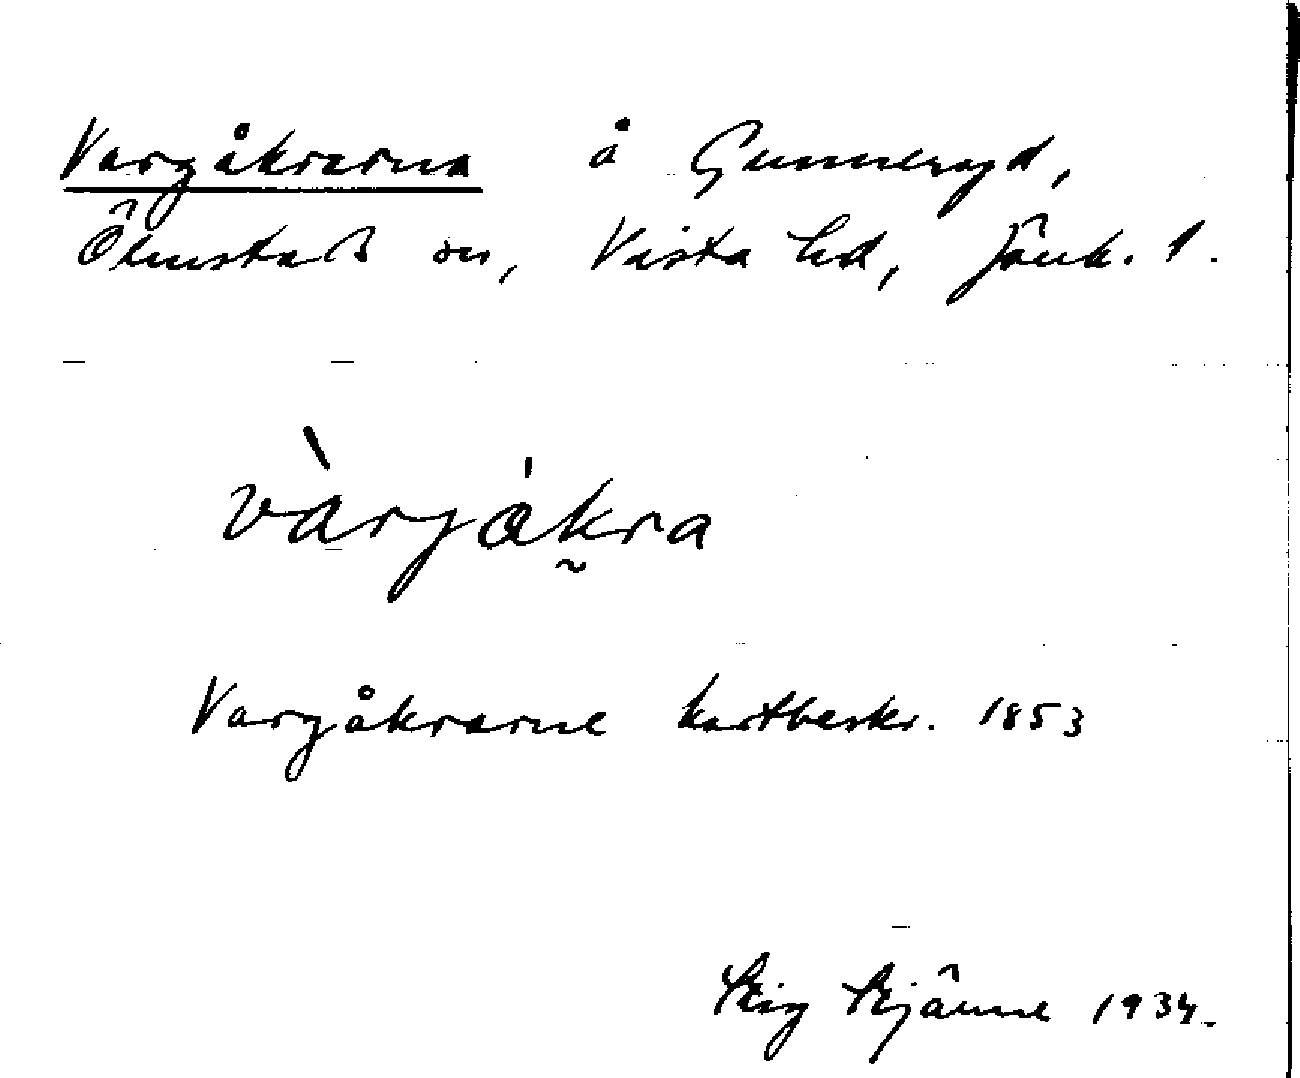 Vargåkrarna å Gunneryd,
Ölmstad sn, Vista hd, Jönk. l.
vàrjåkra
Vargåkrarne kartbeskr. 1853
Stig Stjärne 1934.